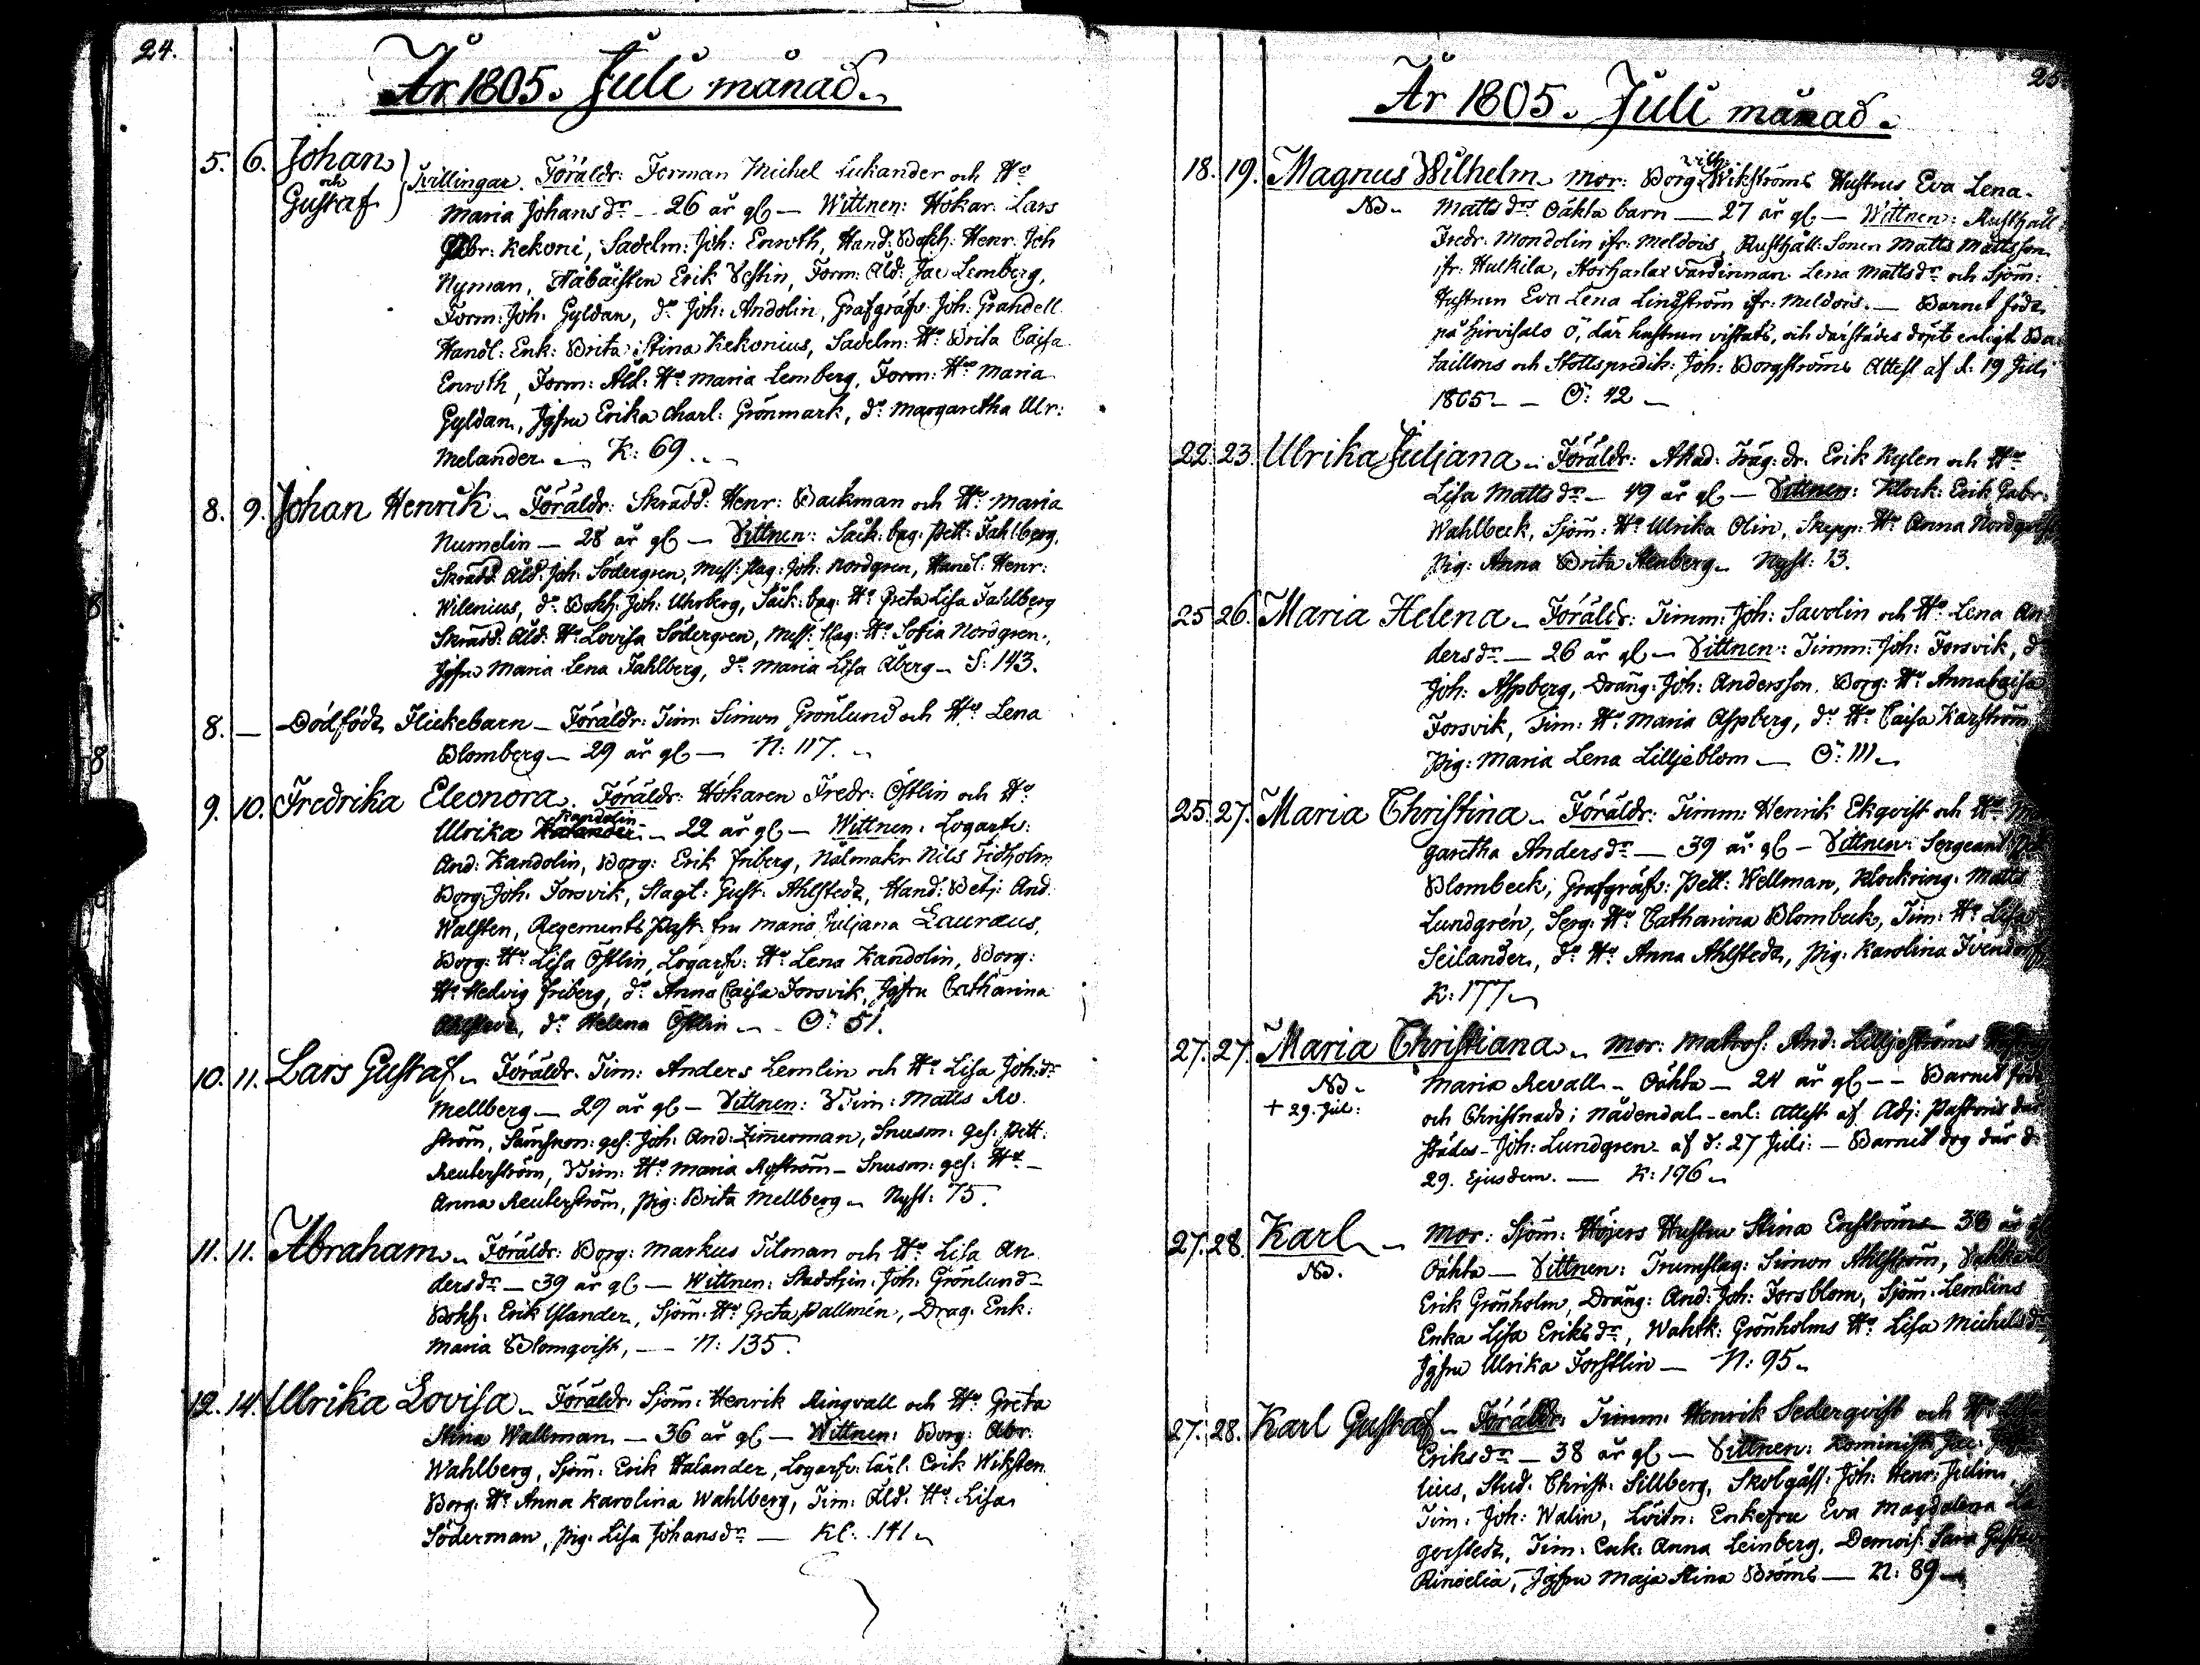 24.
År 1805. Juli månad.
5. 6. Johan
och
Gustaf
Tvillingar. Föräldr: Forman Michel Lukander och Hu
Maria Johansdr — 26 år gl — Wittnen: Hökar. Lars
Gabr: Kekoni, Sadelm: Joh: Enroth, Hand: Bokh: Henr: Joh
Nyman, Erik Vestin, Form: Åld: Jac Lemberg,
Form: Joh: Gyldan, do Joh: Andolin, Grafgräfv: Joh: Grandell
Handl: Enk: Brita Stina Kekonius, Sadelm: Hu Brita Caisa
Enroth, Form: Åld: Hu Maria Lemberg, Form: Hu Maria
Gyldan, Jgfru Erika Charl: Grönmark, do Margaretha Ulr:
Melander — K: 69.
8. 9. Johan Henrik — Föräldr: Skrädd: Henr: Backman och Hu Maria
Numelin — 28 år gl — Vittnen: Såck: bag: Pett: Fahlberg,
Skrädd: Åld: Joh: Södergren, Mess: slag: Joh: Nordgren, Handl: Henr:
Wilenius, do Bokh: Joh: Uhrberg, Såck: bag: Hu Greta Lisa Fahlberg
Skrädd: Åld: Hu Lovisa Södergren, Mess: slag: Hu Sofia Nordgren,
Jgfru Maria Lena Fahlberg, do Maria Lisa Åberg — S: 143.
8. — Dödfödt Flickebarn — Föräldr: Tim: Simon Grönlund och Hu Lena
Blomberg — 29 år gl — N: 117.
9. 10. Fredrika Eleonora. Föräldr: Hökaren Fredr: Östlin och Hu
Kandolin
Ulrika — 22 år gl — Wittnen: Logarfv:
And: Kandolin, Borg: Erik Friberg, Nålmakr Nils Fidholm
Borg: Joh: Forsvik, Slagt: Gust: Ahlstedt, Hand: Betj: And:
Walsten, Regements Past: fru Maria Juljana Lauræus,
Borg: Hu Lisa Östlin, Logarfv: Hu Lena Kandolin, Borg:
Hu Hedvig Friberg, do Anna Caisa Forsvik, Jgfru Catharina
Ahlstedt, do Helena Östlin — Ö: 51.
10. 11. Lars Gustaf — Föräldr: Tim: Anders Lemlin och Hu Lisa Joh:dr
Mellberg — 29 år gl — Vittnen: Tim: Matts Ry
ström, gef: Joh: And: Zimerman, Snusm: gef: Pett:
Reuterström, Tim: Hu Maria Ryström — Snusm: gef: Hu —
Anna Reuterström, Pig: Brita Mellberg — Nyst: 75.
11. 11. Abraham — Föräldr: Borg: Markus Tilman och Hu Lisa An
dersdr — 39 år gl — Wittnen: Stadstjen: Joh: Grönlund —
Bokh: Erik Ylander, Sjöm: Hu Greta Pallmén, Drag: Enk:
Maria Blomqvist, — N: 135.
12. 14. Ulrika Lovisa — Föräldr: Sjöm: Henrik Ringvall och Hu Greta
Stina Wallman — 36 år gl — Wittnen: Borg: Abr:
Wahlberg, Sjöm: Erik Halander, Logarfv: Carl: Erik Wiksten
Borg: Hu Anna Karolina Wahlberg, Tim: Åld: Hu Lisa
Söderman, Pig: Lisa Johansdr — Kl: 141
25
År 1805. Juli månad.
18. 19. Magnus Wilhelm — Mor: Borg: Wikströms Hustrus Eva Lena
NB. Mattsdrs oäkta barn — 27 år gl — Wittnen: Rusthåll
Fredr: Mondolin ifr: Meldois, Rusthåll: Sonen Matts Mattsson
ifr: Hulkila, Lena Mattsdr och Sjöm:
Hustrun Eva Lena Lindström ifr: Meldois. — Barnet född
på Hirvisalo ö, där hustrun vistats, och därstädes döpt enligt Ba
taillons och Slottspredik: Joh: Borgströms Attest af d: 19 Juli
1805 — Ö: 42 —
22. 23. Ulrika Juljana — Föräldr: Akad: Träg: dr: Erik Rylen och Hu
Lisa Mattsdr — 49 år gl — Vittnen: Klock: Erik Gabr:
Wahlbeck, Sjöm: Hu Ulrika Olin, Skepp: Hu Anna Nordqvist
Pig: Anna Brita Stenberg — Nyst: 13.
25 26. Maria Helena — Föräldr: Timm: Joh: Savolin och Hu Lena An
dersdr — 26 år gl — Vittnen: Timm: Joh: Forsvik, d
Joh: Aspberg, Dräng: Joh: Andersson, Borg: Hu Anna Caisa
Forsvik, Tim: Hu Maria Aspberg, do Hu Caisa Karström
Pig: Maria Lena Lilljeblom — Ö: 111
25. 27. Maria Christina — Föräldr: Timm: Henrik Ekqvist och Hu Ma
garetha Andersdr — 39 år gl — Vittnen: Sergeant
Blombeck, Grafgräfv: Pett: Wellman, Klockring: Matts
Lundgrén, Serg: Hu Catharina Blombeck, Tim: Hu Lisa
Seilander, do Hu Anna Ahlstedt, Pig: Karolina
K: 177
27. 27. Maria Christiana — Mor: Matros: And: Lilljeströms
NB. Maria Revall — Oäkta — 24 år gl — Barnet född
+ 29. Jul: och Christnadt i Nådendal — enl: attest af Adj: Pastoris där
städes — Joh: Lundgren — af d: 27 Juli: — Barnet dog där d:
29. Ejusdem. — K: 196
27. 28. Karl — Mor: Sjöm: Höjers Hustru Stina Enström — 38 år gl
NB. Oäkta — Vittnen: Trumslag: Simon Ahlström,
Erik Grönholm, Dräng: And: Joh: Forsblom, Sjöm: Lemlins
Enka Lisa Eriksdr, Wahtk: Grönholms Hu Lisa Michelsdr
Jgfru Ulrika Forstlin — N: 95
27. 28. Karl Gustaf — Föräldr: Timm: Henrik Sederqvist och Hu
Eriksdr — 38 år gl — Vittnen: Kominist: Jac:
lius, Stud: Christ: Sillberg, Skolgåss: Joh: Henr: Julin,
Tim: Joh: Walin, Löitn: Enkefru Eva Magdalena La
gerstedt, Tim: Enk: Anna Leinberg, Demois: Sara
Rindelia, Jgfru Maja Stina Bröms — N: 89